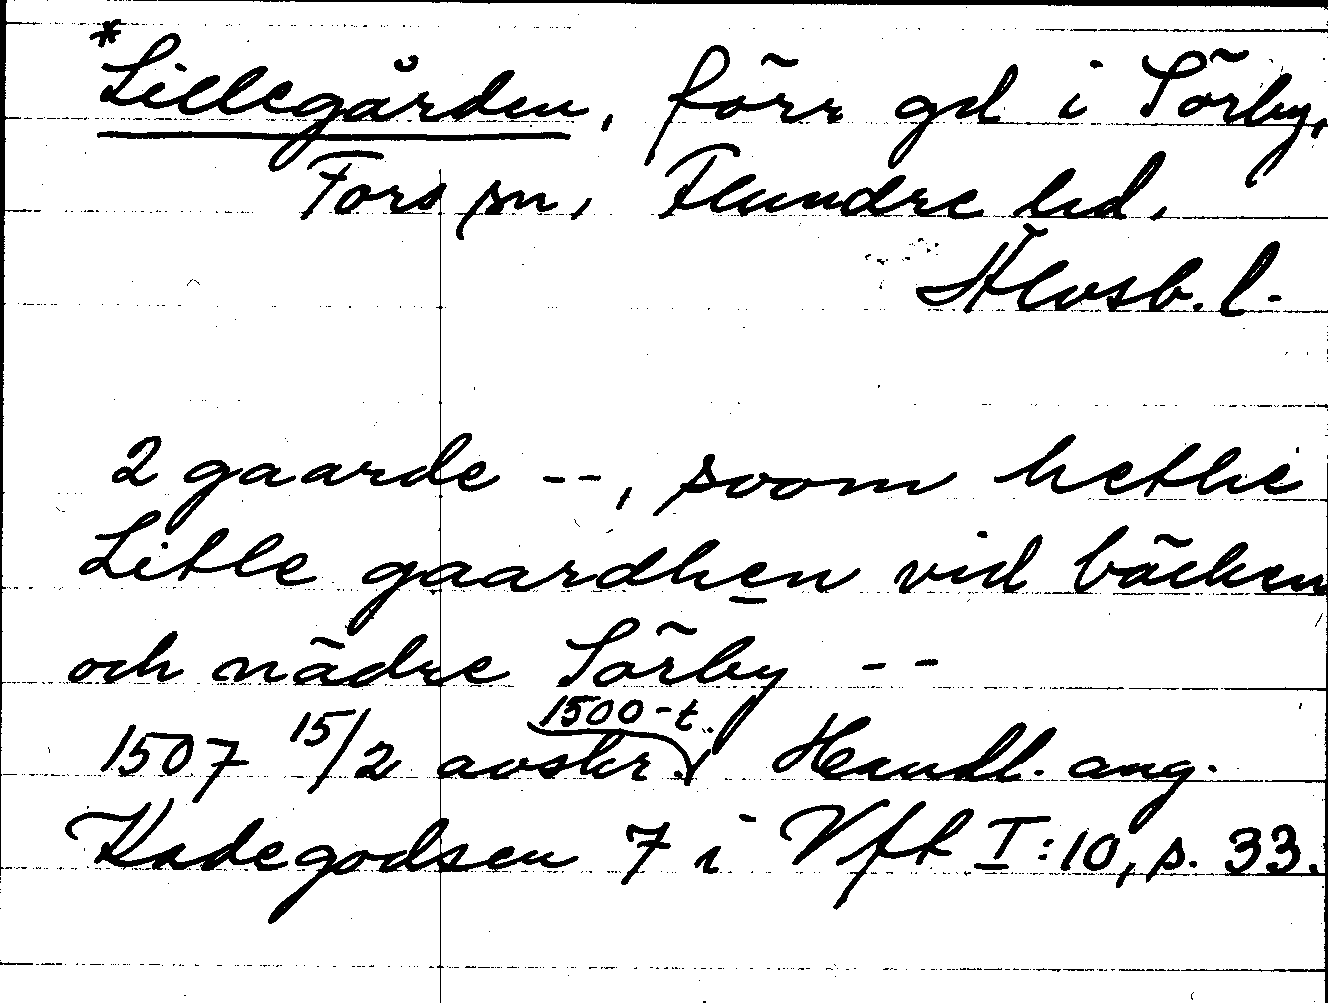 *Lillegården, förr gd i Sörby,
Fors sn, Flundre hd,
Älvsb. l.
2 gaarde --, soom hethe
Litle gaardhen vid bäcken
och nädre Sörby --
1500-t.
1507 15/2 avskr. Handl. ang.
Kadegodsen 7 i Vft I:10, s. 33.